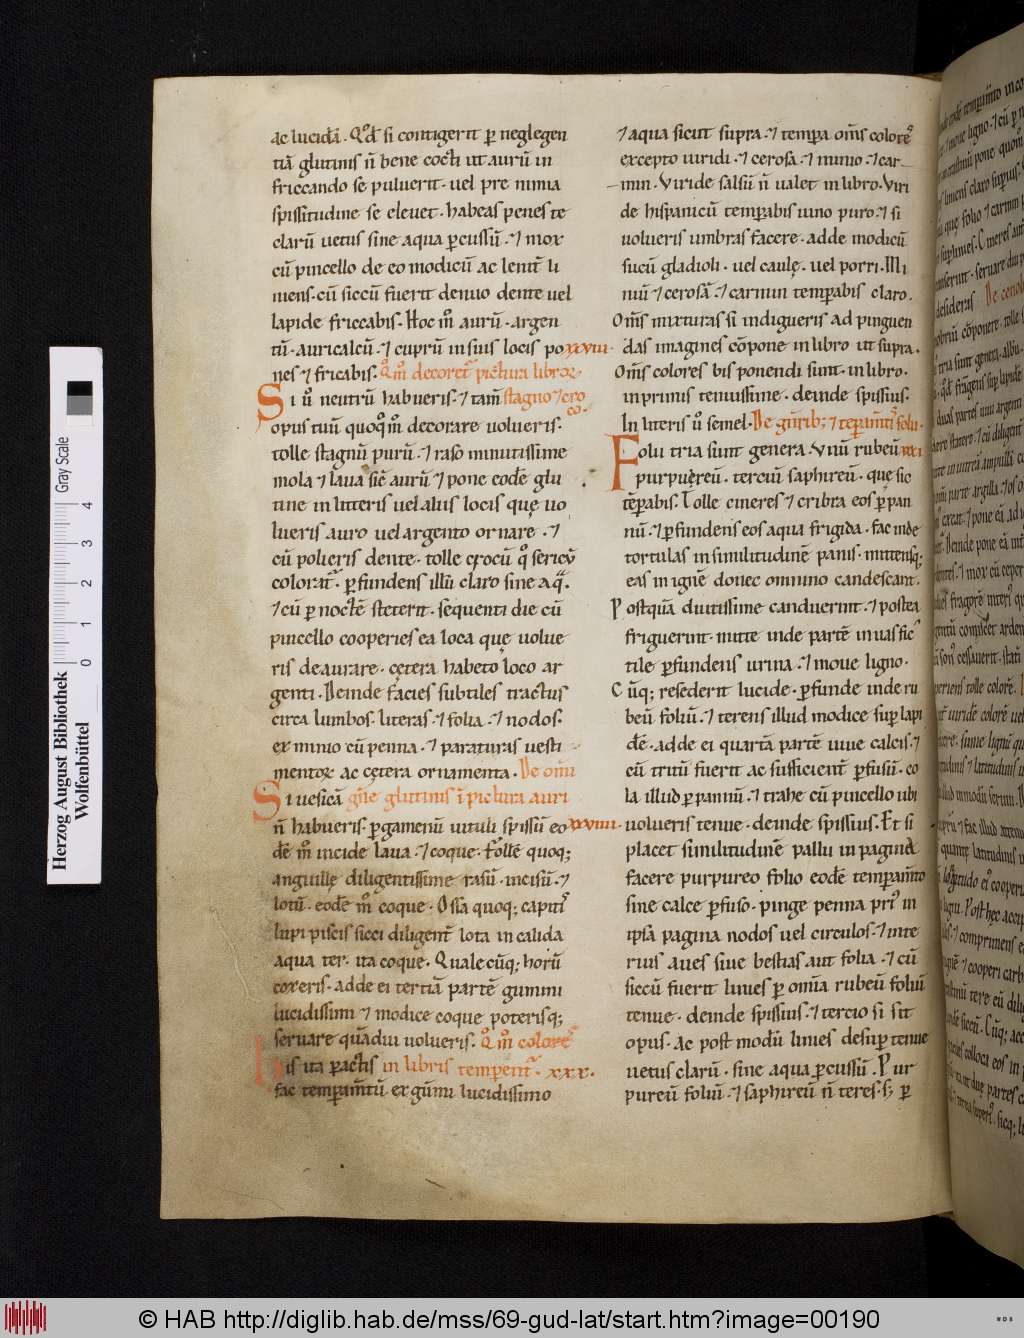 ac lucidā. Qđ si contigerit ꝑ neglegen
tiā glutinis n̄ bene cocti ut aurū in
fricando se puluerit. uel pre nimia
spissitudine se eleuet. habeas penes te
clarū uetus sine aqua ꝑcussū. ⁊ mox
cū pincello de eo modicū ac lenit̄ li
niens. cū siccū fuerit denuo dente uel
lapide fricabis. Hoc m̊ aurū. argen
tū. auricalcū. ⁊ cuprū in suis locis po
nes ⁊ fricabis. Qm̊ decoret᷑ pictura libroꝝ
Si ů neutrū habueris. ⁊ tam̄ stagno ⁊ cro
co.
opus tuū quoq̊m̊ decorare uolueris.
tolle stagnū purū. ⁊ raso minutissime
mola ⁊ laua sic̄ aurū ⁊ pone eodē glu
tine in litteris uel aliis locis quę uo
lueris auro uel argento ornare. ⁊
cū polieris dente. tolle crocū q̊ sericū
colorat᷑. ꝑfundens illū claro sine aq̄.
⁊ cū ꝑ noctē steterit. sequenti die cū
pincello cooperies ea loca quę uolue
ris deaurare. cętera habeto loco ar
genti. Deinde facies subtiles tractus
circa lumbos. literas. ⁊ folia. ⁊ nodos.
ex minio cū penna. ⁊ paraturas uesti
mentoꝝ ac cętera ornamenta. De omī
Si uesicā gn̄e glutinis ī pictura auri
n̄ habueris. ꝑgamenū uituli spissū eo
dē m̊ incide laua. ⁊ coque. follē quoq;
anguillę diligentissime rasū. incisū. ⁊
lotū. eodē m̊ coque. Ossa quoq; capitĩ
lupi piscis sicci diligent̄ lota in calida
aqua ter. ita coque. Qualecūq; horū
coxeris. adde ei tertiā partē gummi
lucidissimi ⁊ modice coque poterisq;
seruare quādiu uolueris. Qm̊ colores
His ita ꝑactis in libris temperent᷑. xxx.
fac temꝑam̄tū ex gūmi lucidissimo
⁊ aqua sicut supra. ⁊ tempa om̄s colores
excepto uiridi. ⁊ cerosa. ⁊ minio. ⁊ car
min. Viride salsū n̄ ualet in libro. Viri
de hispanicū temꝑabis uino puro. ⁊ si
uolueris umbras facere. adde modicū
sucū gladioli. uel caulę. uel porri. Mi
niū ⁊ cerosā. ⁊ carmin temꝑabis claro.
Om̄s mixturas si indigueris ad pinguen
xxviii. das imagines cōpone in libro ut supra.
Om̄s colores bis ponendi sunt. in libro.
inprimis tenuissime. deinde spissius.
In literis ů semel. De gn̄rib; ⁊ teꝑam̄tĩ folii.
Folii tria sunt genera. Vnū rubeū xxxi
purpuręeū. tercιū saphireū. que sic
tēꝑabis. Tolle cineres ⁊ cribra eos ꝑ pan
nū. ⁊ ꝑfundens eos aqua frigida. fac inde
tortulas in similitudinē panis. mittensq;
eas in ignē donec omnino candescant.
Postquā diutissime canduerint. ⁊ postea
friguerint. mitte inde partē in uas fic
tile ꝑfundens urina. ⁊ moue ligno.
Cūq; resederit lucide. ꝑfunde inde ru
beū foliū. ⁊ terens illud modice suꝑ lapi
dē. adde ei quartā partē uiue calcis. ⁊
cū tritū fuerit ac sufficient̄ ꝑfusū. co
la illud ꝑ pannū. ⁊ trahe cū pincello ubi
xxviiii. uolueris tenue. deinde spissius. Et si
placet similitudinē pallii in pagina
facere purpureo folio eodē temꝑam̄to
sine calce ꝑfuso. pinge penna priꝰ in
ipsa pagina nodos uel circulos. ⁊ inte
rius aues siue bestias aut folia. ⁊ cū
siccū fuerit linies ꝑ omnia rubeū foliū
tenue. deinde spissius. ⁊ tercio si sit
opus. ac post modū linies desuꝑ tenue
uetus clarū. sine aqua ꝑcussū. Pur
pureū foliū. ⁊ saphireū n̄ teres. s; ꝑ
Herzog August Bibliothek
Wolfenbüttel
Gray Scale
0 1 2 3 4
© HAB http://diglib.hab.de/mss/69-gud-lat/start.htm?image=00190